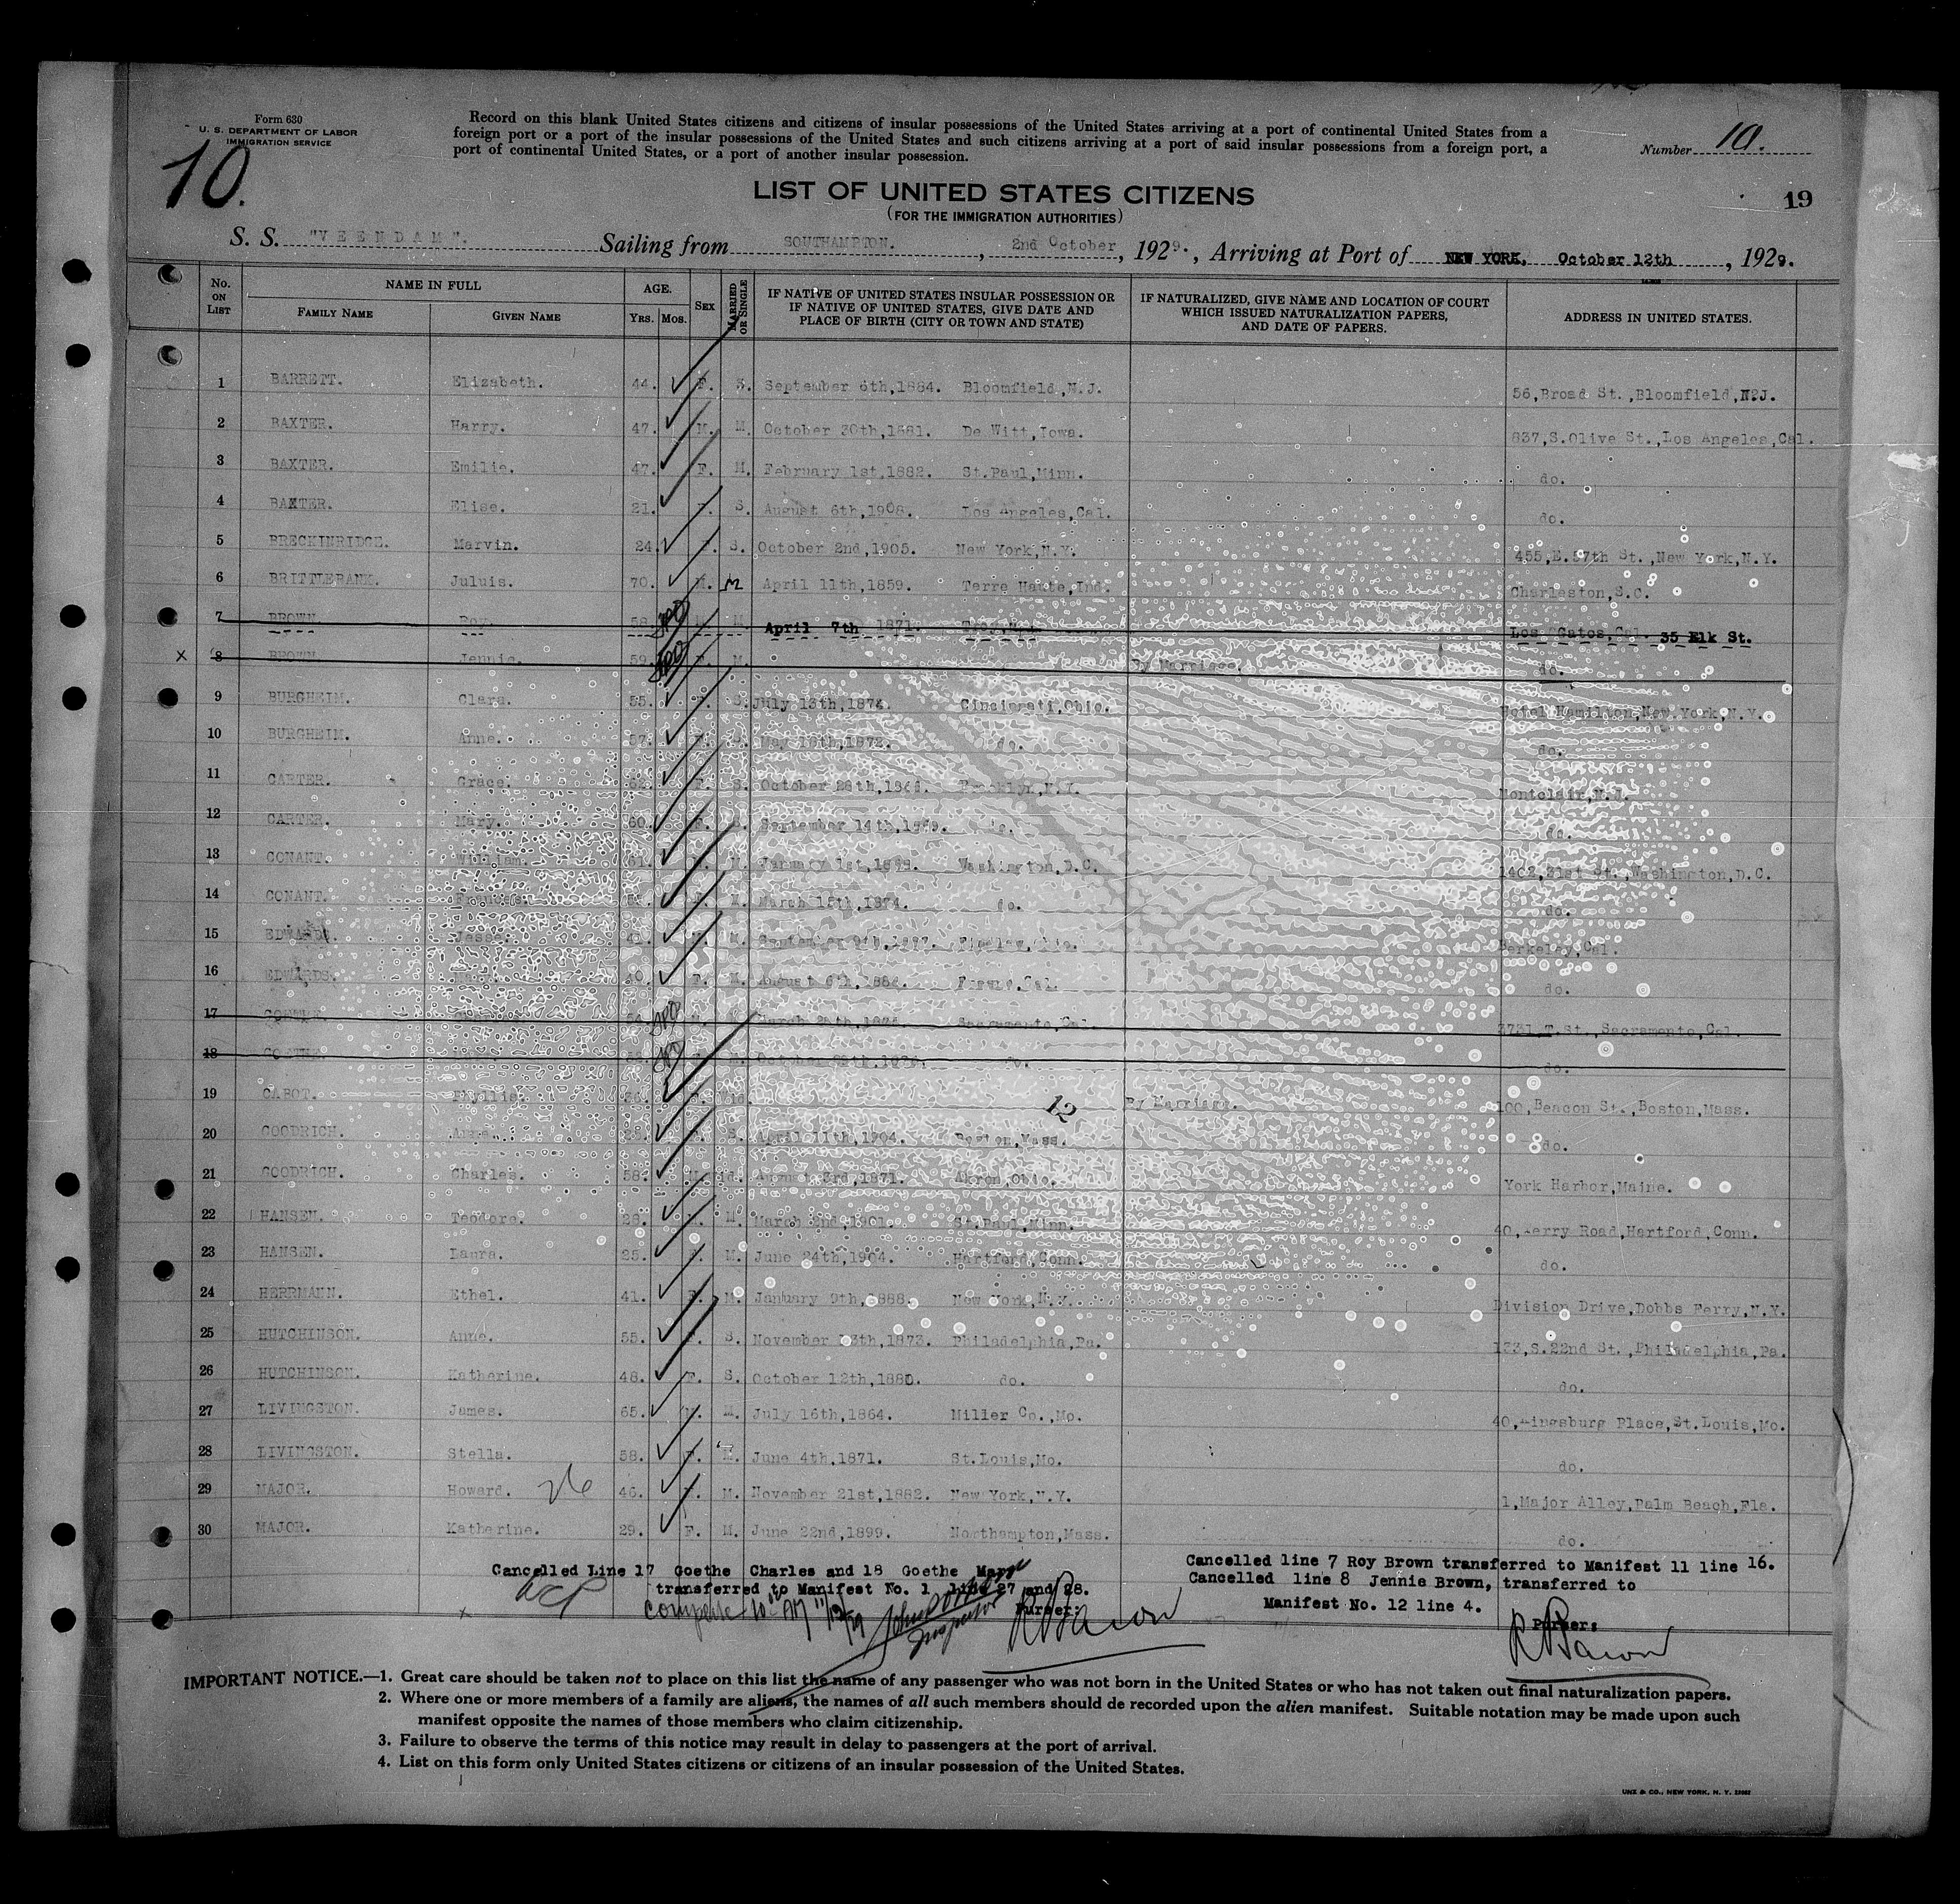 Form 630
U. S. DEPARTMENT OF LABOR
IMMIGRATION SERVICE
10.
Record on this blank United States citizens and citizens of insular possessions of the United States arriving at a port of continental United States from a
foreign port or a port of the insular possessions of the United States and such citizens arriving at a port of said insular possessions from a foreign port, a
port of continental United States, or a port of another insular possession.
Number 10.
LIST OF UNITED STATES CITIZENS
(FOR THE IMMIGRATION AUTHORITIES)
19
S. S. "VEENDAM". Sailing from SOUTHAMPTON. , 2nd October , 1929. , Arriving at Port of NEW YORK, October 12th , 1929.
No. ON LIST NAME IN FULL AGE. SEX MARRIED OR SINGLE IF NATIVE OF UNITED STATES INSULAR POSSESSION OR IF NATIVE OF UNITED STATES, GIVE DATE AND PLACE OF BIRTH (CITY OR TOWN AND STATE) IF NATURALIZED, GIVE NAME AND LOCATION OF COURT WHICH ISSUED NATURALIZATION PAPERS, AND DATE OF PAPERS. ADDRESS IN UNITED STATES.
FAMILY NAME GIVEN NAME YRS. MOS.
1 BARRETT. Elizabeth. 44. F. S. September 6th,1884. Bloomfield,N.J. 56,Broad St.,Bloomfield,N.J.
2 BAXTER. Harry. 47. M. M. October 30th,1881. De Witt,Iowa. 837,S.Olive St.,Los Angeles,Cal.
3 BAXTER. Emilie. 47. F. M. February 1st,1882. St.Paul,Minn. do.
4 BAXTER. Elise. 21. F. S. August 6th,1908. Los Angeles,Cal. do.
5 BRECKINRIDGE. Marvin. 24. F. S. October 2nd,1905. New York,N.Y. 455,E.57th St.,New York,N.Y.
6 BRITTLEBANK. Juluis. 70. M. M April 11th,1859. Terre Haute,Ind. Charleston,S.C.
7 BROWN. Roy. 58. M. April 7th 1871. Los Gatos,Cal. 35 Elk St.
x 8 BROWN. Jennie. 59. F. M. By Marriage. do.
9 BURGHEIM. Clara. 55. F. S. July 13th,1874. Cincinnati,Ohio. Hotel Hamilton,New York,N.Y.
10 BURGHEIM. Anne. 57. 1872. do. do.
11 CARTER. Grace. F. S. October 28th, Brooklyn,N.Y. Montclair,N.J.
12 CARTER. Mary. 60. F. September 14th, do. do.
13 CONANT. William. 61. M. January 1st, Washington,D.C. 31st St.,Washington,D.C.
14 CONANT. M. March 15th,1874. do. do.
15 EDWARDS. M. September 9th, Berkeley,Cal.
16 EDWARDS. 40. F. M. August 6th, Cal. do.
17 GOETHE. March Sacramento,Cal. 3731,T.St.,Sacramento,Cal.
18 GOETHE. October do. do.
19 CABOT. Phyllis. By Marriage. 100,Beacon St.,Boston,Mass.
12
20 GOODRICH. S. April 11th,1904. Boston,Mass. do.
21 GOODRICH. Charles. 58. August 3rd,1871. Akron,Ohio. York Harbor,Maine.
22 HANSEN. Teodore. 28. M. March 2nd,1901. St.Paul,Minn. Road,Hartford,Conn.
23 HANSEN. Laura. 25. F. M. June 24th,1904. Hartford,Conn. do.
24 HERRMANN. Ethel. 41. F. M. January 9th,1888. New York,N.Y. Division Drive,Dobbs Ferry,N.Y.
25 HUTCHINSON. Anne. 55. F. S. November 13th,1873. Philadelphia,Pa. 133,S.22nd St.,Philadelphia,Pa.
26 HUTCHINSON. Katherine. 48. F. S. October 12th,1880. do. do.
27 LIVINGSTON. James. 65. M. M. July 16th,1864. Miller Co.,Mo. 40,Kingsburg Place,St.Louis,Mo.
28 LIVINGSTON. Stella. 58. F. M. June 4th,1871. St.Louis,Mo. do.
29 MAJOR. Howard. 46. M. M. November 21st,1882. New York,N.Y. 1,Major Alley,Palm Beach,Fla.
30 MAJOR. Katherine. 29. F. M. June 22nd,1899. Northampton,Mass. do.
Cancelled Line 17 Goethe Charles and 18 Goethe Mary
transferred to Manifest No. 1 line 27 and 28.
Purser:
R Bacon
Inspector
Cancelled line 7 Roy Brown transferred to Manifest 11 line 16.
Cancelled line 8 Jennie Brown, transferred to
Manifest No. 12 line 4.
Purser:
R Bacon
IMPORTANT NOTICE.—1. Great care should be taken not to place on this list the name of any passenger who was not born in the United States or who has not taken out final naturalization papers.
2. Where one or more members of a family are aliens, the names of all such members should de recorded upon the alien manifest. Suitable notation may be made upon such
manifest opposite the names of those members who claim citizenship.
3. Failure to observe the terms of this notice may result in delay to passengers at the port of arrival.
4. List on this form only United States citizens or citizens of an insular possession of the United States.
UNZ & CO., NEW YORK, N. Y.